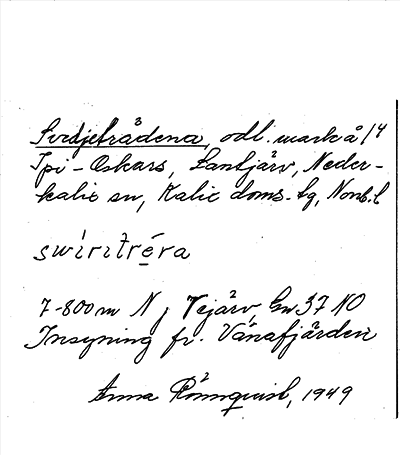 Svedjeträdena, odl. mark å 1/4
Ipi-Oskars, Lantjärv, Neder-
kalix sn, Kalix doms. tg, Norrb. l
swìrıtréra
7-800 m N j Vejärv, Gn 37 NO
Insyning fr. Vånafjärden
Anna Rönnquist, 1949